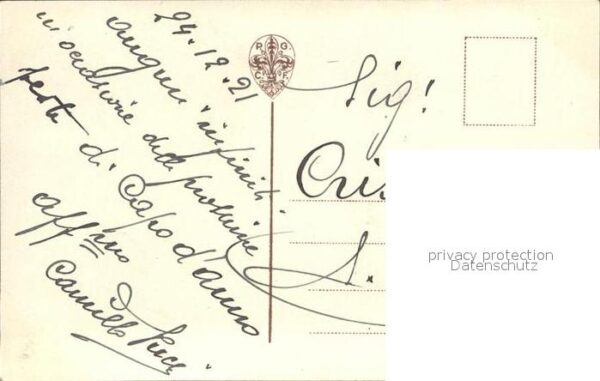 24.12.21
auguri infiniti
in occasione della prossime
feste di Capo d'anno
aff.mo
Camillo
R G
C F
Sig!
S.
privacy protection
Datenschutz